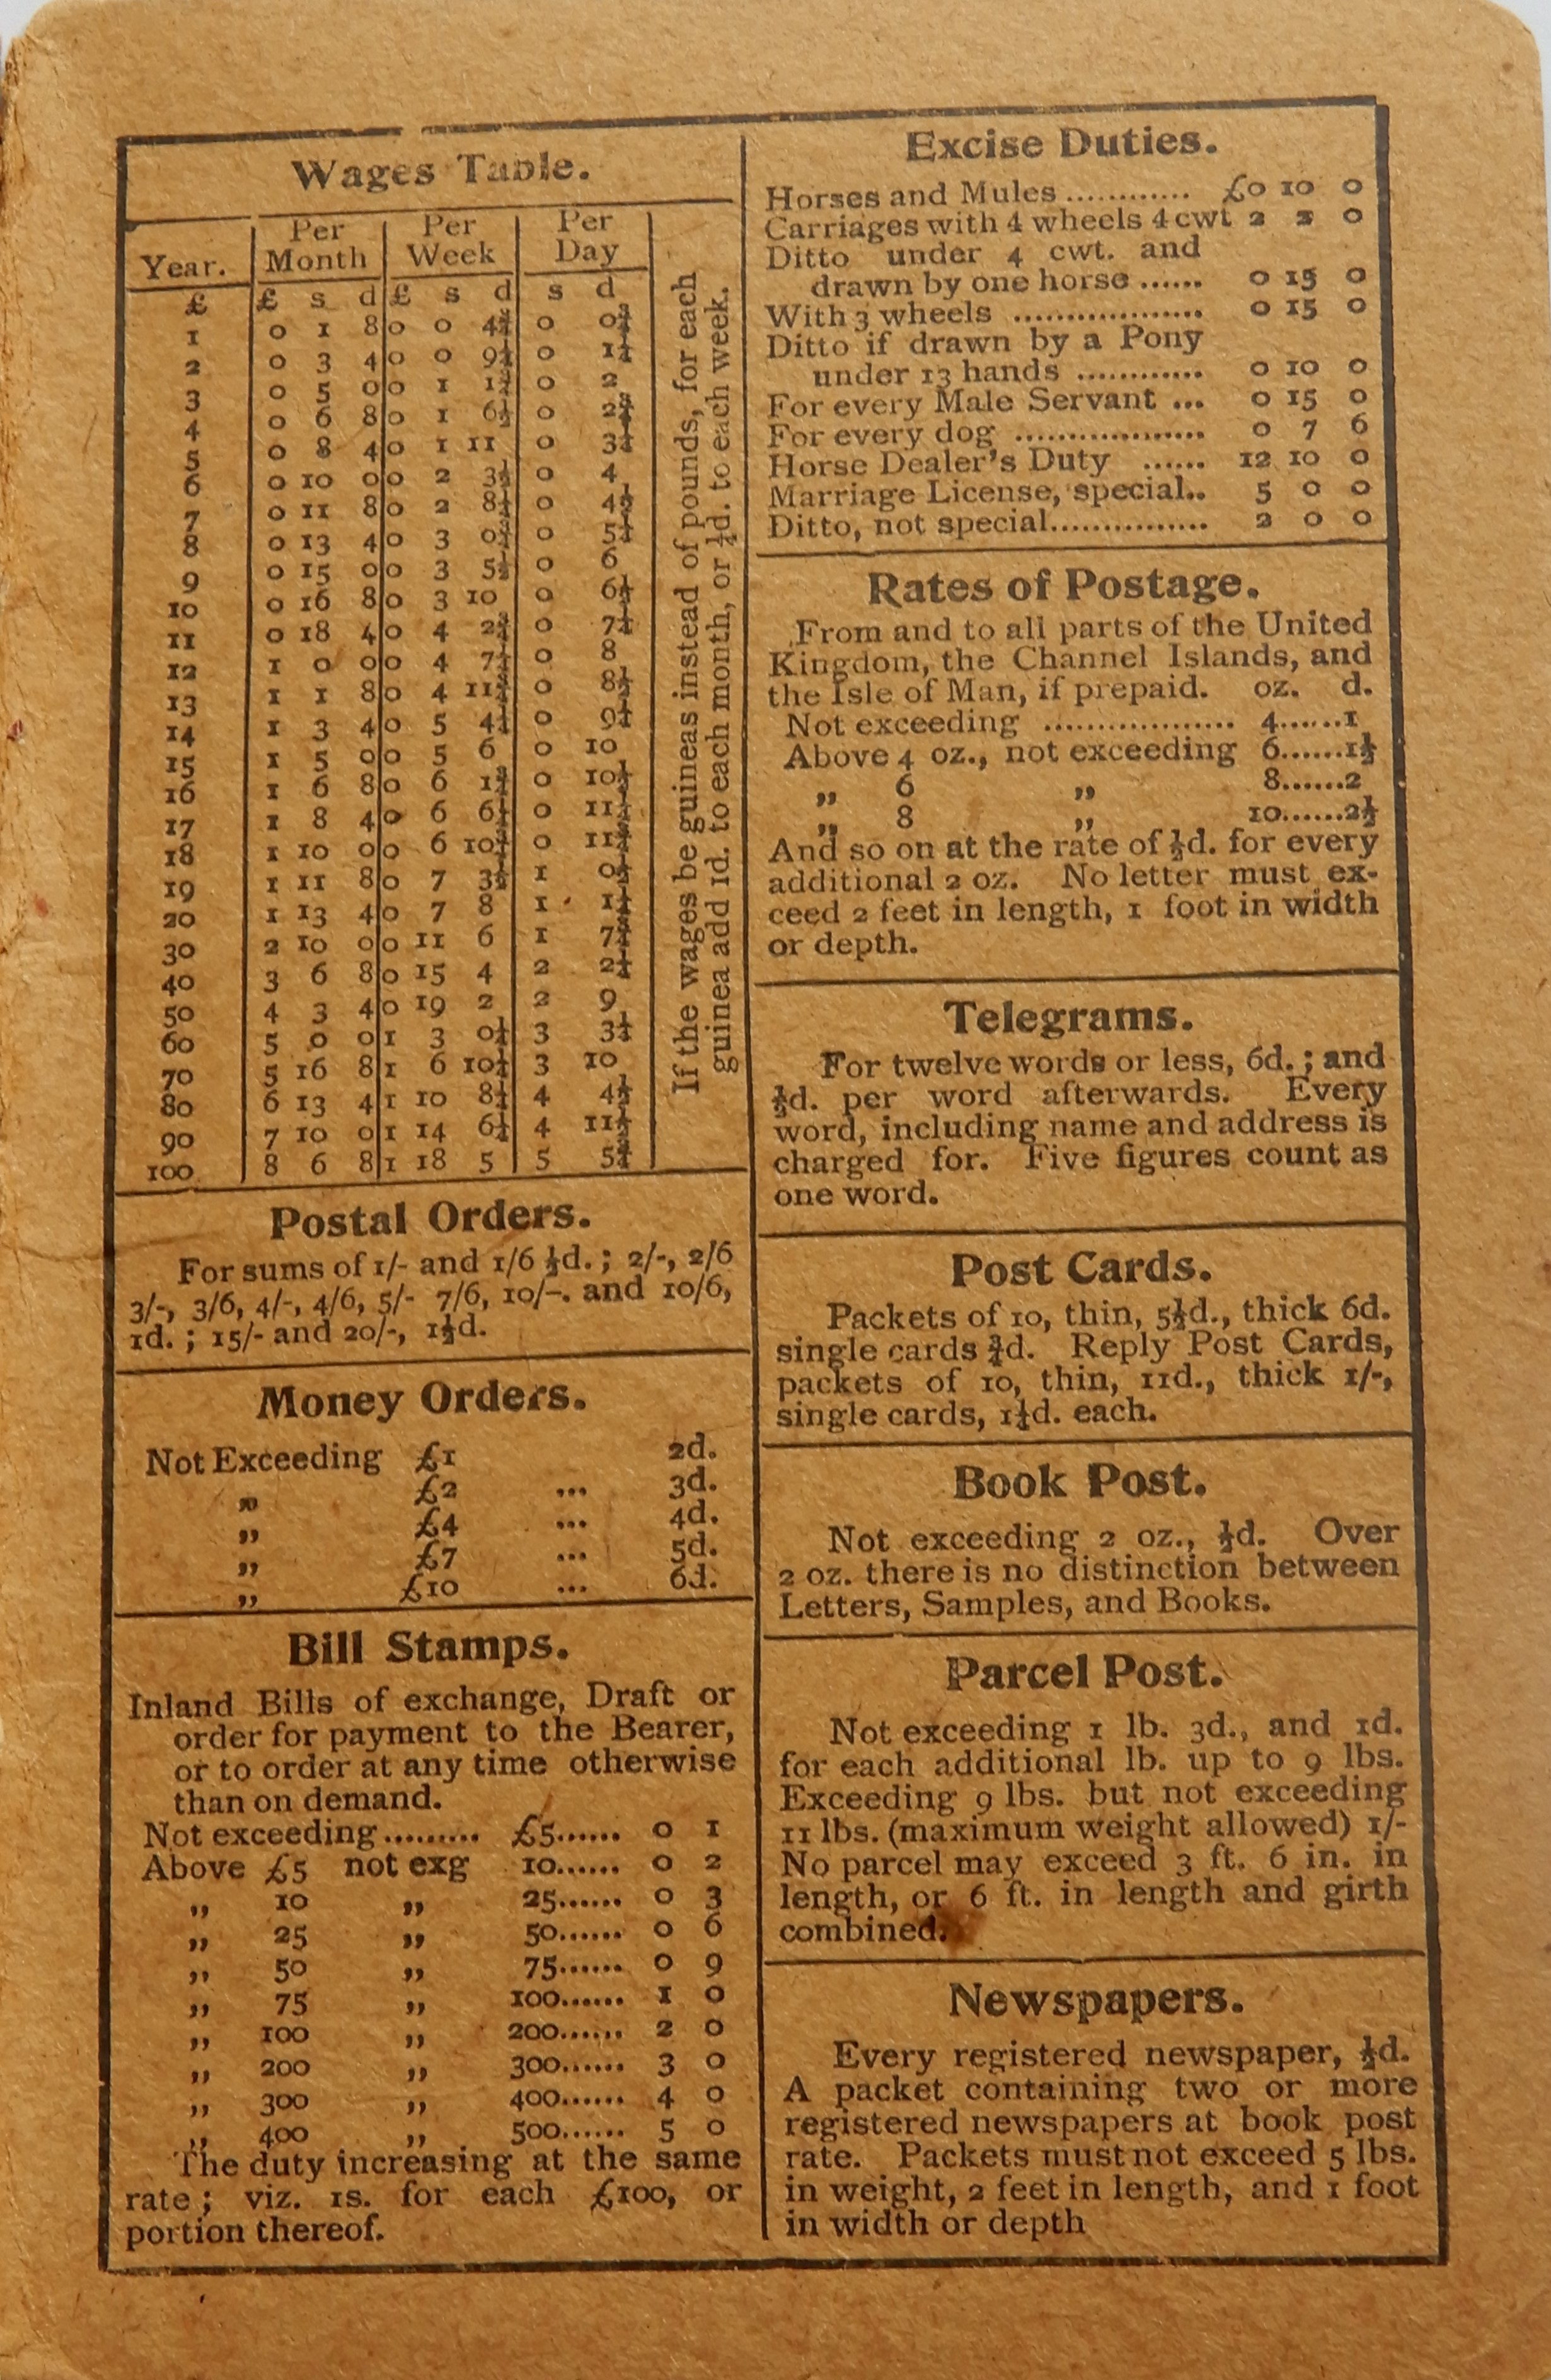 Wages Table.
Year. Per Month Per Week Per Day
£ £ s d £ s d s d
1 0 1 8 0 0 4¾ 0 0¾
2 0 3 4 0 0 9¼ 0 1¼
3 0 5 0 0 1 1¾ 0 2
4 0 6 8 0 1 6½ 0 2¾
5 0 8 4 0 1 11 0 3¼
6 0 10 0 0 2 3½ 0 4
7 0 11 8 0 2 8¼ 0 4½
8 0 13 4 0 3 0¾ 0 5¼
9 0 15 0 0 3 5½ 0 6
10 0 16 8 0 3 10 0 6½
11 0 18 4 0 4 2¾ 0 7¼
12 1 0 0 0 4 7¼ 0 8
13 1 1 8 0 4 11¾ 0 8½
14 1 3 4 0 5 4½ 0 9¼
15 1 5 0 0 5 6 0 10
16 1 6 8 0 6 1¾ 0 10½
17 1 8 4 0 6 6¼ 0 11¼
18 1 10 0 0 6 10¾ 0 11¾
19 1 11 8 0 7 3½ 1 0½
20 1 13 4 0 7 8 1 1¼
30 2 10 0 0 11 6 1 7¾
40 3 6 8 0 15 4 2 2¼
50 4 3 4 0 19 2 2 9
60 5 0 0 1 3 0¼ 3 3½
70 5 16 8 1 6 10¼ 3 10
80 6 13 4 1 10 8¼ 4 4½
90 7 10 0 1 14 6¼ 4 11¼
100 8 6 8 1 18 5 5 5¾
If the wages be guineas instead of pounds, for each
guinea add 1d. to each month, or ¼d. to each week.
Postal Orders.
For sums of 1/- and 1/6 ½d.; 2/-, 2/6
3/-, 3/6, 4/-, 4/6, 5/- 7/6, 10/-. and 10/6,
1d.; 15/- and 20/-, 1½d.
Money Orders.
Not Exceeding £1 2d.
,, £2 ... 3d.
,, £4 ... 4d.
,, £7 ... 5d.
,, £10 ... 6d.
Bill Stamps.
Inland Bills of exchange, Draft or
order for payment to the Bearer,
or to order at any time otherwise
than on demand.
Not exceeding......... £5...... 0 1
Above £5 not exg 10...... 0 2
,, 10 ,, 25...... 0 3
,, 25 ,, 50...... 0 6
,, 50 ,, 75...... 0 9
,, 75 ,, 100...... 1 0
,, 100 ,, 200...... 2 0
,, 200 ,, 300...... 3 0
,, 300 ,, 400...... 4 0
,, 400 ,, 500...... 5 0
The duty increasing at the same
rate; viz. 1s. for each £100, or
portion thereof.
Excise Duties.
Horses and Mules ............ £0 10 0
Carriages with 4 wheels 4 cwt 2 2 0
Ditto under 4 cwt. and
drawn by one horse ...... 0 15 0
With 3 wheels .................. 0 15 0
Ditto if drawn by a Pony
under 13 hands ............ 0 10 0
For every Male Servant ... 0 15 0
For every dog .................. 0 7 6
Horse Dealer's Duty ...... 12 10 0
Marriage License, special.. 5 0 0
Ditto, not special............... 2 0 0
Rates of Postage.
From and to all parts of the United
Kingdom, the Channel Islands, and
the Isle of Man, if prepaid. oz. d.
Not exceeding .................. 4......1
Above 4 oz., not exceeding 6......1½
,, 6 ,, 8......2
,, 8 ,, 10......2½
And so on at the rate of ½d. for every
additional 2 oz. No letter must ex-
ceed 2 feet in length, 1 foot in width
or depth.
Telegrams.
For twelve words or less, 6d.; and
½d. per word afterwards. Every
word, including name and address is
charged for. Five figures count as
one word.
Post Cards.
Packets of 10, thin, 5½d., thick 6d.
single cards ¾d. Reply Post Cards,
packets of 10, thin, 11d., thick 1/-,
single cards, 1¼d. each.
Book Post.
Not exceeding 2 oz., ½d. Over
2 oz. there is no distinction between
Letters, Samples, and Books.
Parcel Post.
Not exceeding 1 lb. 3d., and 1d.
for each additional lb. up to 9 lbs.
Exceeding 9 lbs. but not exceeding
11 lbs. (maximum weight allowed) 1/-
No parcel may exceed 3 ft. 6 in. in
length, or 6 ft. in length and girth
combined.
Newspapers.
Every registered newspaper, ½d.
A packet containing two or more
registered newspapers at book post
rate. Packets must not exceed 5 lbs.
in weight, 2 feet in length, and 1 foot
in width or depth